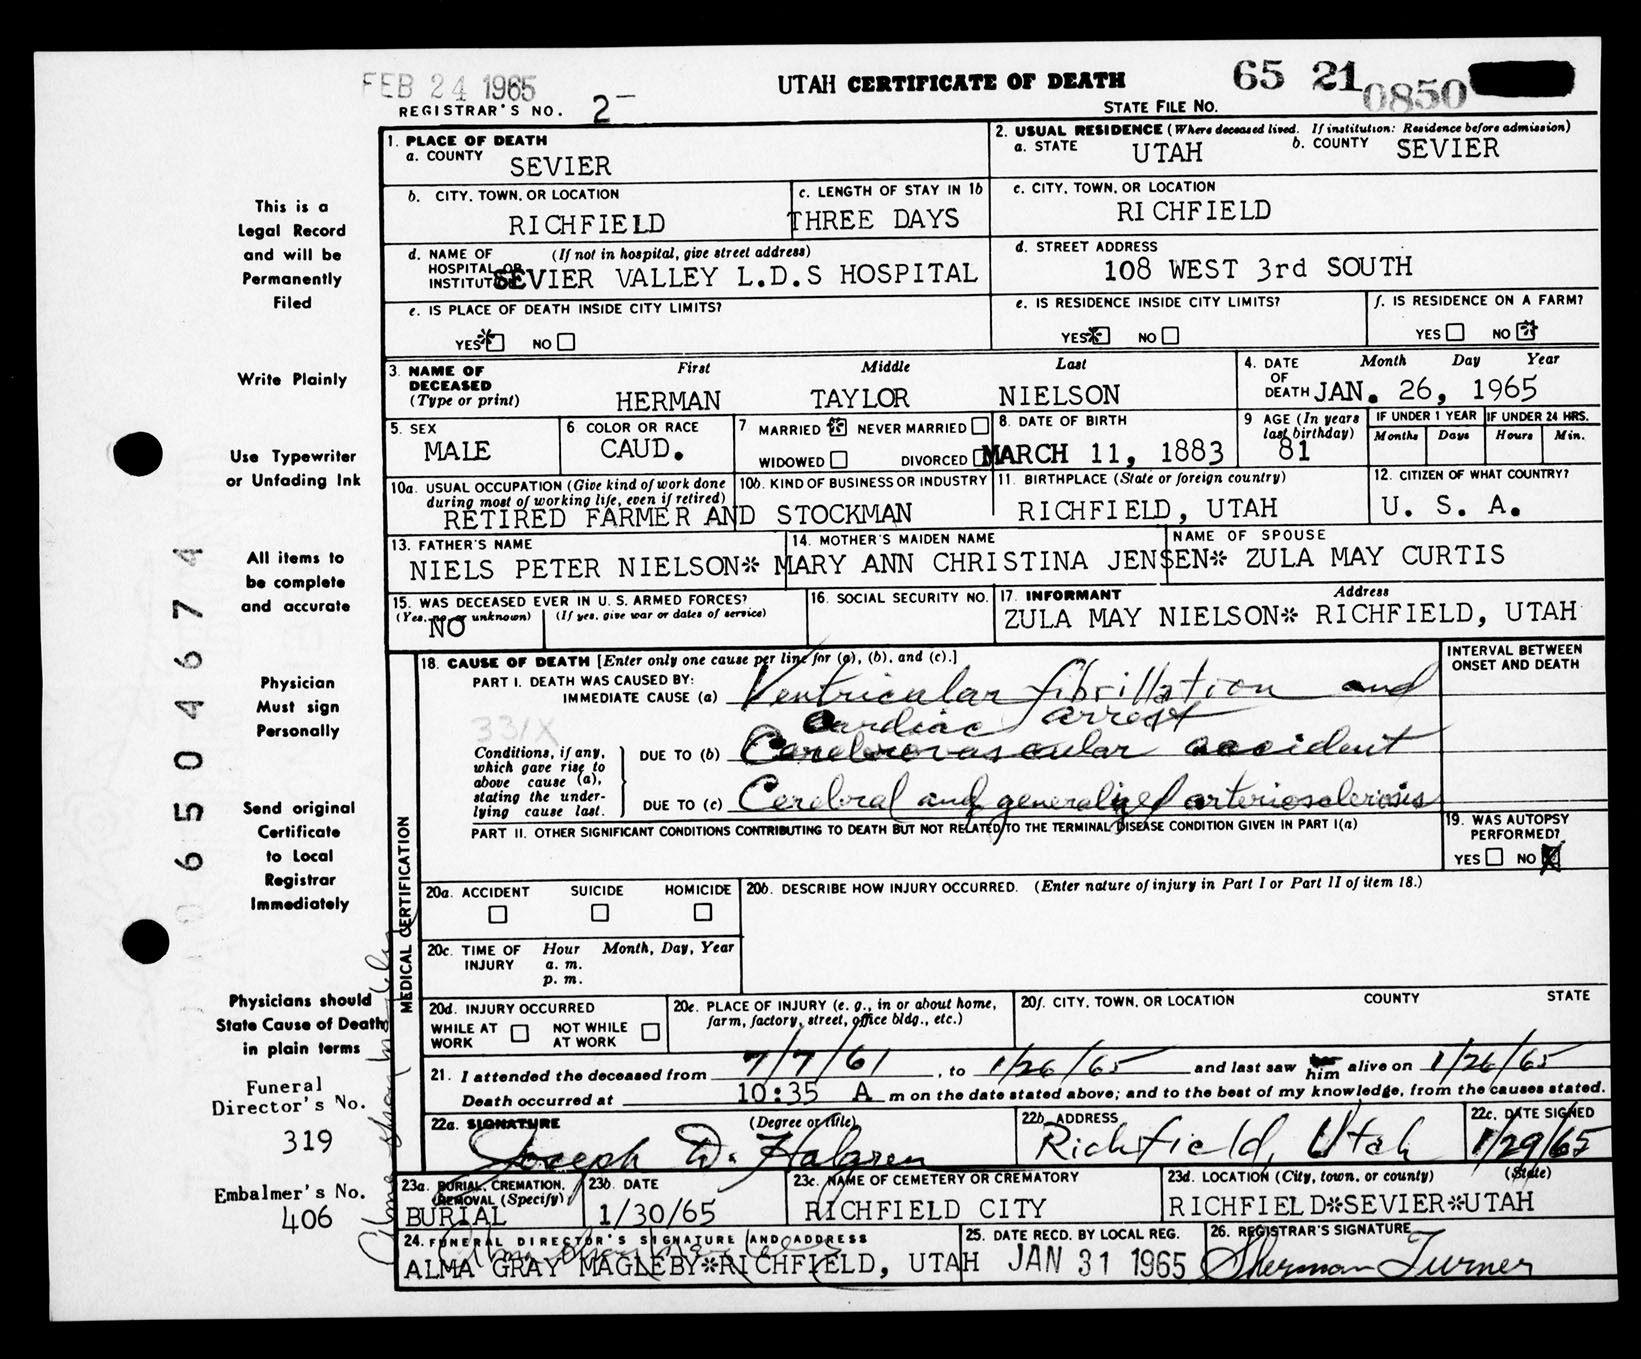 FEB 24 1965
UTAH CERTIFICATE OF DEATH
65 21 0850
REGISTRAR'S NO. 2
STATE FILE NO.
1. PLACE OF DEATH
a. COUNTY SEVIER
2. USUAL RESIDENCE (Where deceased lived. If institution: Residence before admission)
a. STATE UTAH b. COUNTY SEVIER
b. CITY, TOWN, OR LOCATION RICHFIELD
c. LENGTH OF STAY IN 1b THREE DAYS
c. CITY, TOWN, OR LOCATION RICHFIELD
d. NAME OF HOSPITAL OR INSTITUTION (If not in hospital, give street address)
SEVIER VALLEY L.D.S HOSPITAL
d. STREET ADDRESS
108 WEST 3rd SOUTH
e. IS PLACE OF DEATH INSIDE CITY LIMITS?
YES NO
e. IS RESIDENCE INSIDE CITY LIMITS?
YES NO
f. IS RESIDENCE ON A FARM?
YES NO
3. NAME OF DECEASED (Type or print)
First Middle Last
HERMAN TAYLOR NIELSON
4. DATE OF DEATH Month Day Year
JAN. 26, 1965
5. SEX
MALE
6. COLOR OR RACE
CAUD.
7 MARRIED NEVER MARRIED
WIDOWED DIVORCED
8. DATE OF BIRTH
MARCH 11, 1883
9 AGE (In years last birthday)
81
IF UNDER 1 YEAR IF UNDER 24 HRS.
Months Days Hours Min.
10a. USUAL OCCUPATION (Give kind of work done during most of working life, even if retired)
10b. KIND OF BUSINESS OR INDUSTRY
RETIRED FARMER AND STOCKMAN
11. BIRTHPLACE (State or foreign country)
RICHFIELD, UTAH
12. CITIZEN OF WHAT COUNTRY?
U. S. A.
13. FATHER'S NAME
14. MOTHER'S MAIDEN NAME
NAME OF SPOUSE
NIELS PETER NIELSON* MARY ANN CHRISTINA JENSEN* ZULA MAY CURTIS
15. WAS DECEASED EVER IN U. S. ARMED FORCES?
(Yes, no or unknown) (If yes, give war or dates of service)
NO
16. SOCIAL SECURITY NO.
17. INFORMANT Address
ZULA MAY NIELSON* RICHFIELD, UTAH
18. CAUSE OF DEATH [Enter only one cause per line for (a), (b), and (c).]
INTERVAL BETWEEN ONSET AND DEATH
PART I. DEATH WAS CAUSED BY:
IMMEDIATE CAUSE (a) Ventricular fibrillation and
cardiac arrest
331X
Conditions, if any, which gave rise to above cause (a), stating the underlying cause last.
DUE TO (b) Cerebrovascular accident
DUE TO (c) Cerebral and generalized arteriosclerosis
PART II. OTHER SIGNIFICANT CONDITIONS CONTRIBUTING TO DEATH BUT NOT RELATED TO THE TERMINAL DISEASE CONDITION GIVEN IN PART I(a)
19. WAS AUTOPSY PERFORMED?
YES NO
20a. ACCIDENT SUICIDE HOMICIDE
20b. DESCRIBE HOW INJURY OCCURRED. (Enter nature of injury in Part I or Part II of item 18.)
20c. TIME OF INJURY Hour Month, Day, Year
a. m.
p. m.
20d. INJURY OCCURRED
WHILE AT WORK NOT WHILE AT WORK
20e. PLACE OF INJURY (e. g., in or about home, farm, factory, street, office bldg., etc.)
20f. CITY, TOWN, OR LOCATION COUNTY STATE
21. I attended the deceased from 7/7/61, to 1/26/65 and last saw her him alive on 1/26/65
Death occurred at 10:35 A m on the date stated above; and to the best of my knowledge, from the causes stated.
22a. SIGNATURE (Degree or title)
Joseph D. Halgren
22b. ADDRESS
Richfield, Utah
22c. DATE SIGNED
1/29/65
23a. BURIAL, CREMATION, REMOVAL (Specify)
BURIAL
23b. DATE
1/30/65
23c. NAME OF CEMETERY OR CREMATORY
RICHFIELD CITY
23d. LOCATION (City, town, or county) (State)
RICHFIELD*SEVIER*UTAH
24. FUNERAL DIRECTOR'S SIGNATURE AND ADDRESS
ALMA GRAY MAGLEBY*RICHFIELD, UTAH
25. DATE RECD. BY LOCAL REG.
JAN 31 1965
26. REGISTRAR'S SIGNATURE
Sherman Turner
MEDICAL CERTIFICATION
This is a
Legal Record
and will be
Permanently
Filed
Write Plainly
Use Typewriter
or Unfading Ink
All items to
be complete
and accurate
Physician
Must sign
Personally
Send original
Certificate
to Local
Registrar
Immediately
Physicians should
State Cause of Death
in plain terms
Funeral
Director's No.
319
Embalmer's No.
406
6504674